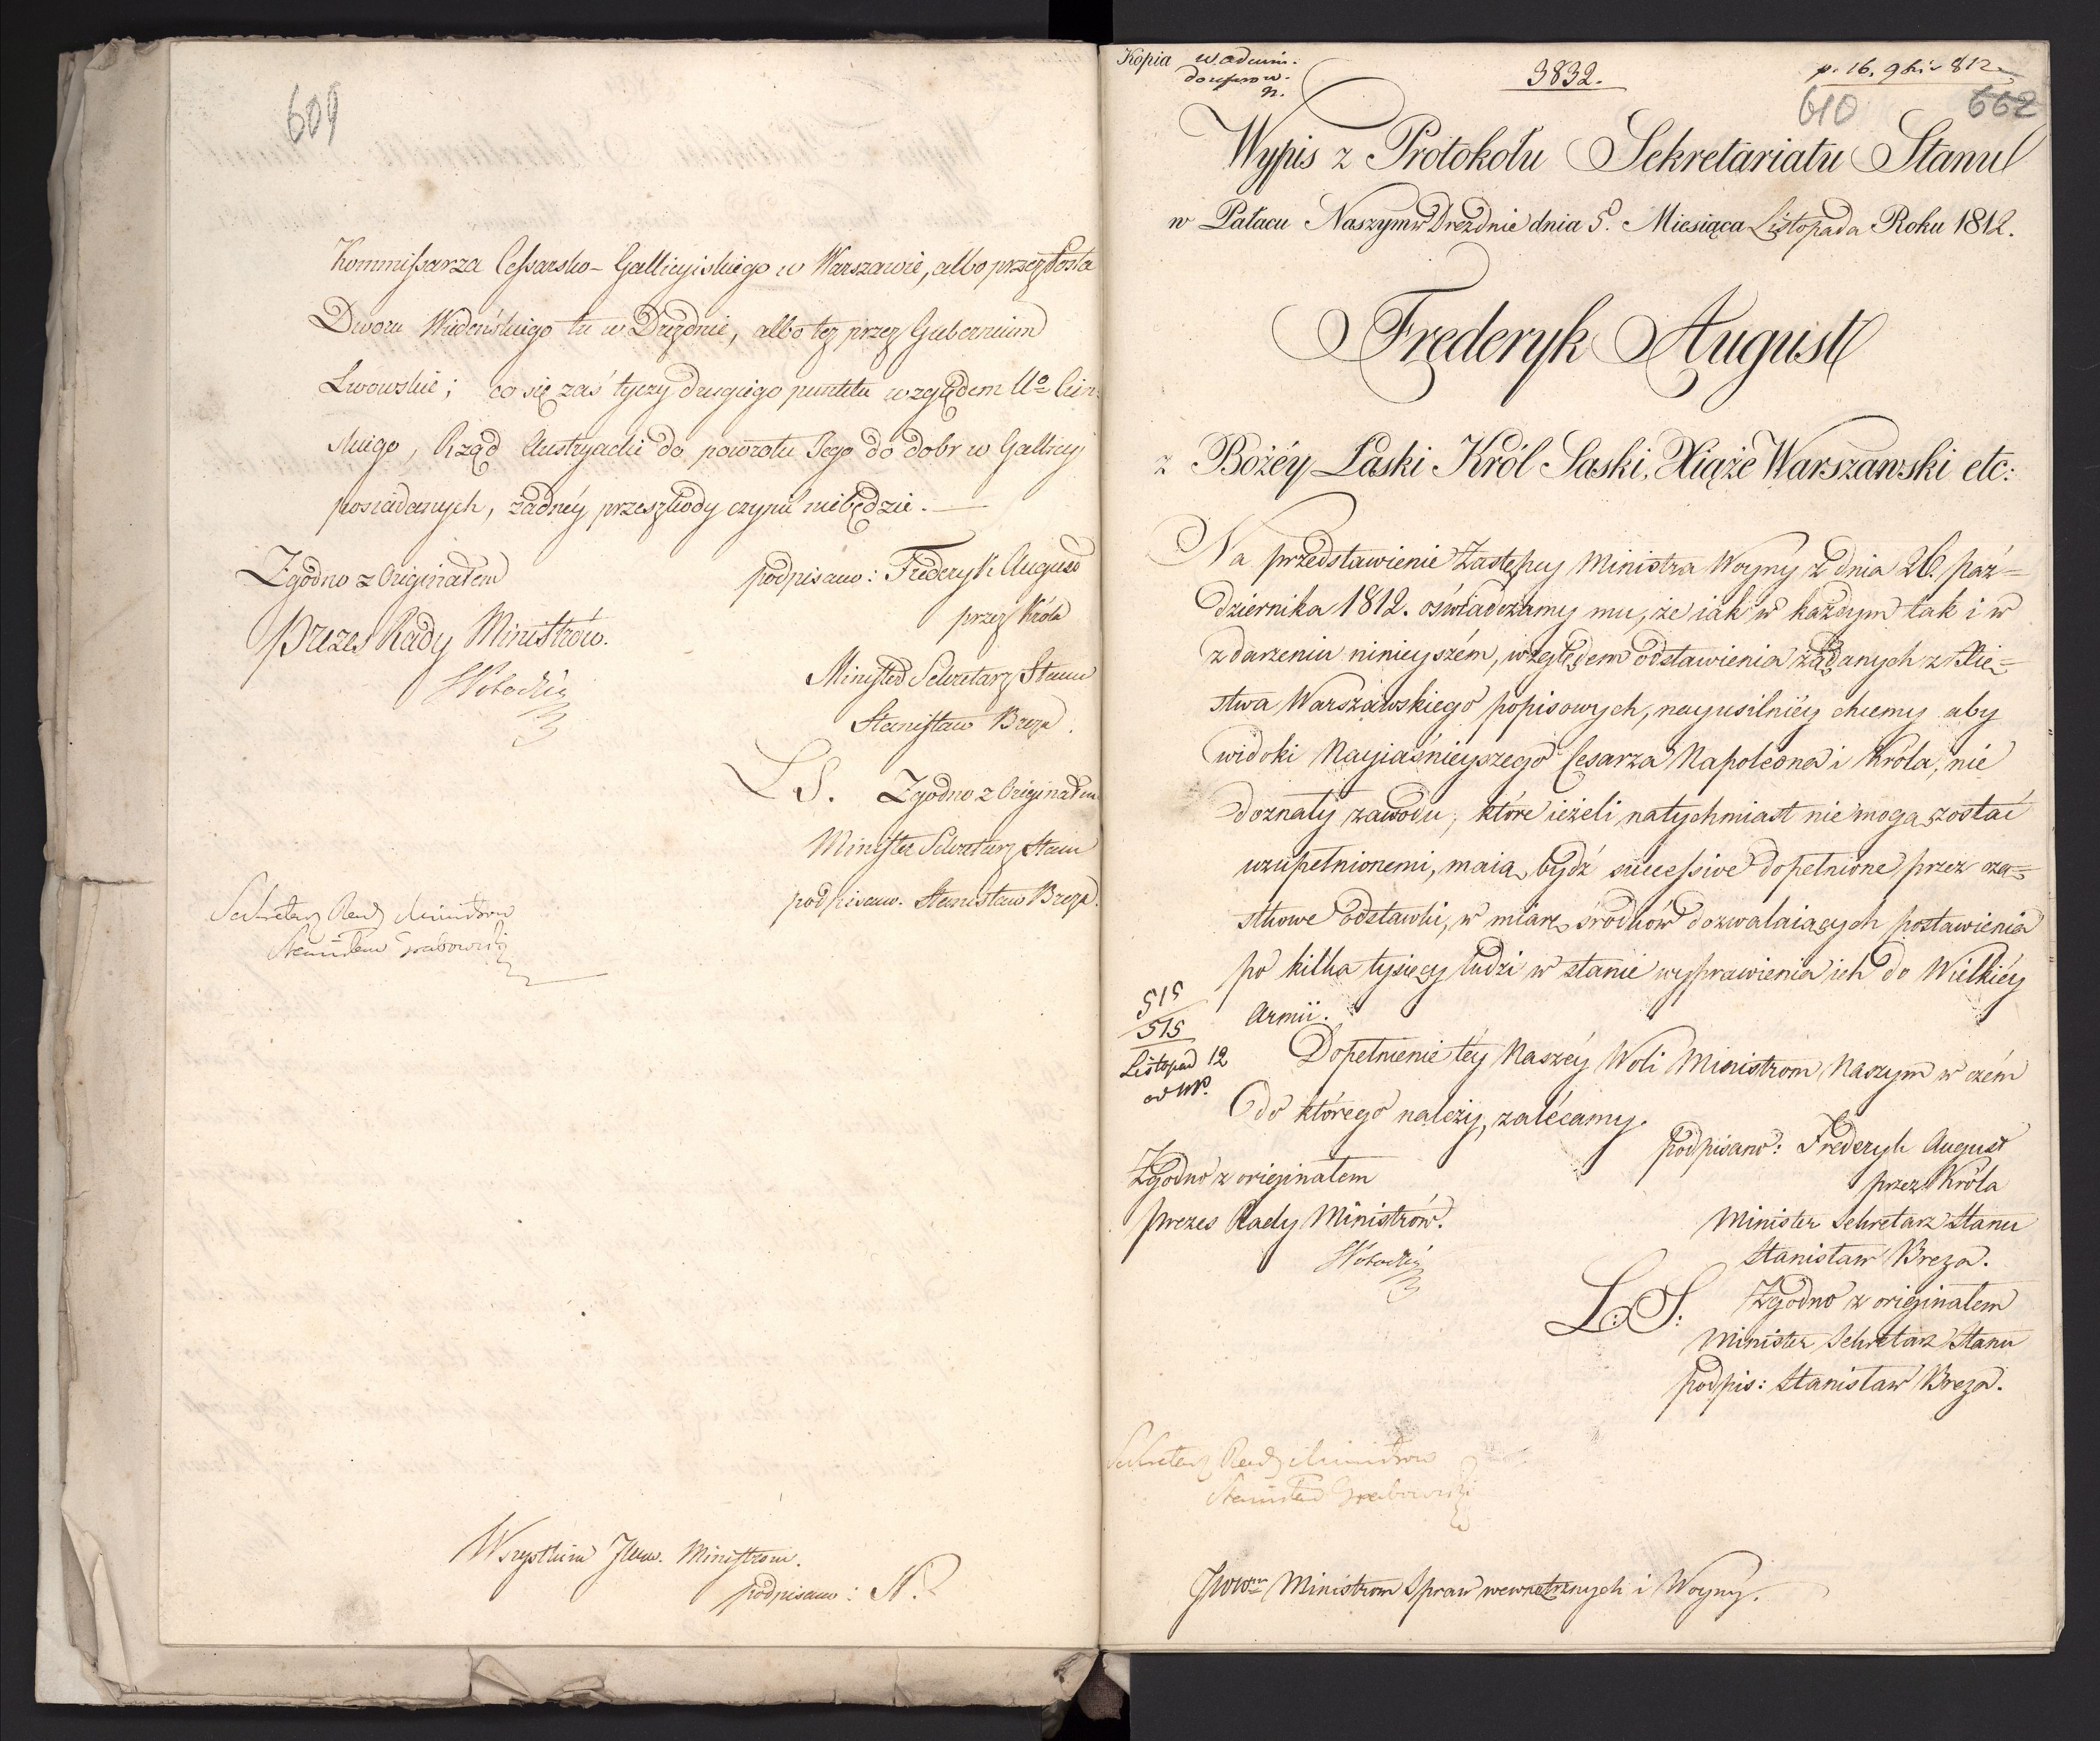 609
Kommissarza Cessarsko-Gallicyiskiego w Warszawie, albo przez Posła
Dworu Wideńskiego tu w Dreźnie, albo też przez Gubernium
Lwowskie; co się zaś tyczy drugiego punktu względem Uo
skiego, Rząd Austryacki do powrotu Jego do dobr w Gallicyi
posiadanych, żadnéy przeszkody czynić niebędzie.
Zgodno z Originałem
Prezes Rady Ministrów.
podpisano: Frederyk August
przez Króla
Minister Sekretarz Stanu
Stanisław Breza.
LS. Zgodno z Originałem
Minister Sekretarz Stanu
podpisano. Stanisław Breza.
Sekretarz Rady Ministrow
Stanisław Grabowski
Wszystkim Jww. Ministrom.
podpisano: N.
Kopia
3832.
p. 16. 9bis 812
610 662
Wypis z Protokołu Sekretariatu Stanu
w Pałacu Naszym w Dreźdnie dnia 5. Miesiąca Listopada Roku 1812.
Frederyk August
z Bożéy Łaski Król Saski, Xiąże Warszawski etc:
Na przedstawienie Zastępcy Ministra Woyny z dnia 26. paź=
dziernika 1812. oświadczamy mu, że iak w każdym tak i w
zdarzeniu ninieyszém, względem odstawienia żądanych z Xię=
stwa Warszawskiego popisowych, nayusilniéy chcemy aby
widoki Nayiaśnieyszego Cesarza Napoleona i Króla, nie
doznały zawodu, które ieżeli natychmiast nie mogą zostać
uzupełnionemi, maią bydź successive dopełnione przez czą=
stkowe odstawki, w miarę środków dozwalaiących postawienia
po kilka tysięcy ludzi w stanie wyprawienia ich do Wielkiéy
Armii.
515
515
Listopad 12
Dopełnienie téy Naszéy Woli Ministrom Naszym w czém
do którego należy, zalécamy.
Zgodno z originałem
Prezes Rady Ministrów.
podpisano: Frederyk August
przez Króla
Minister Sekretarz Stanu
Stanisław Breza.
L:S: Zgodno z originałem
Minister Sekretarz Stanu
podpis: Stanisław Breza.
Sekretarz Rady Ministrow
Stanisław Grabowski
JWWm Ministrom Spraw wewnętrznych i Woyny.